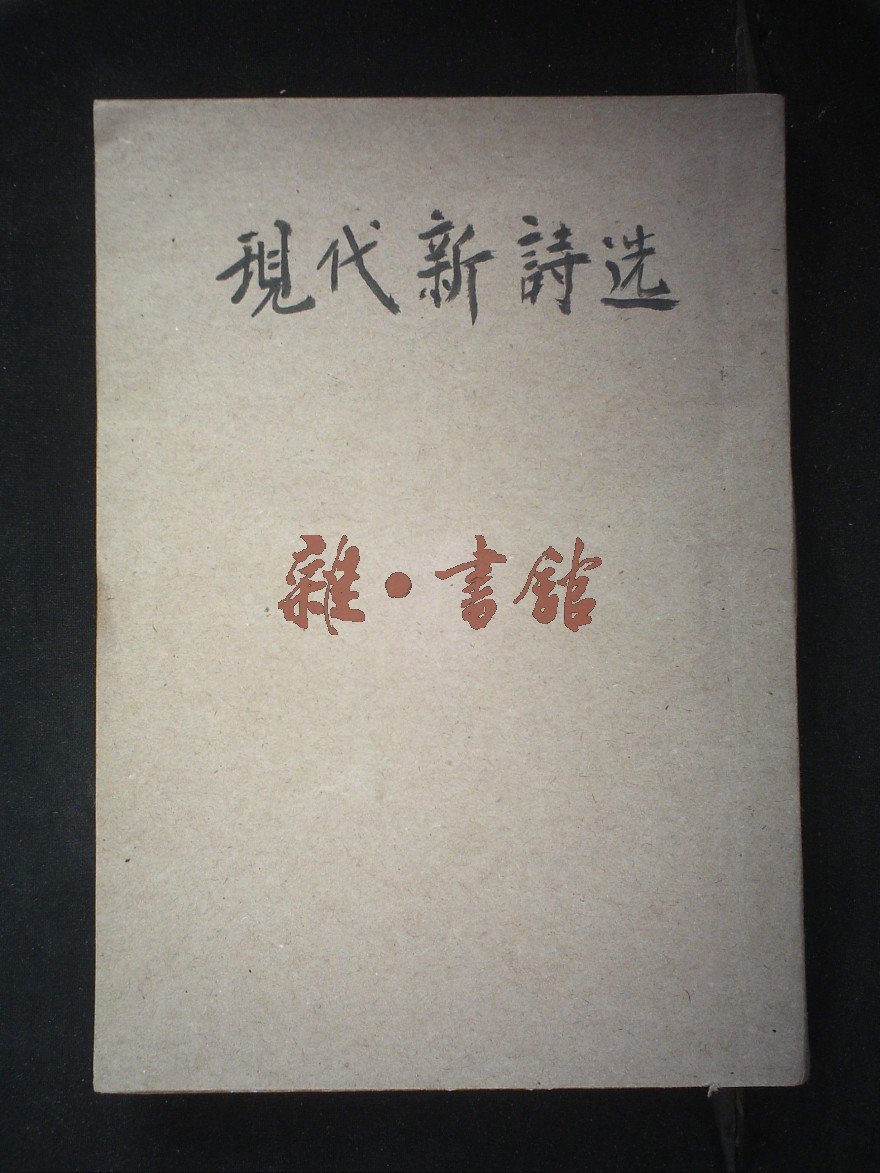 現代新詩选
雜·書館